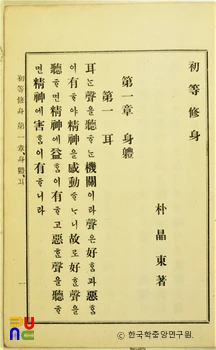 初等修身
朴晶東著
第一章 身體
第一 耳
耳는聲을聽ᄒᆞ는機關이라聲은好ᄒᆞᆷ과惡ᄒᆞᆷ
이有ᄒᆞ야精神을感動ᄒᆞᄂᆞ니故로好ᄒᆞᆫ聲을
聽ᄒᆞ면精神에益ᄒᆞᆷ이有ᄒᆞ고惡ᄒᆞᆫ聲을聽ᄒᆞ
면精神에害ᄒᆞᆷ이有ᄒᆞ니라
初等修身 第一章 身體 耳
一
ⓒ한국학중앙연구원